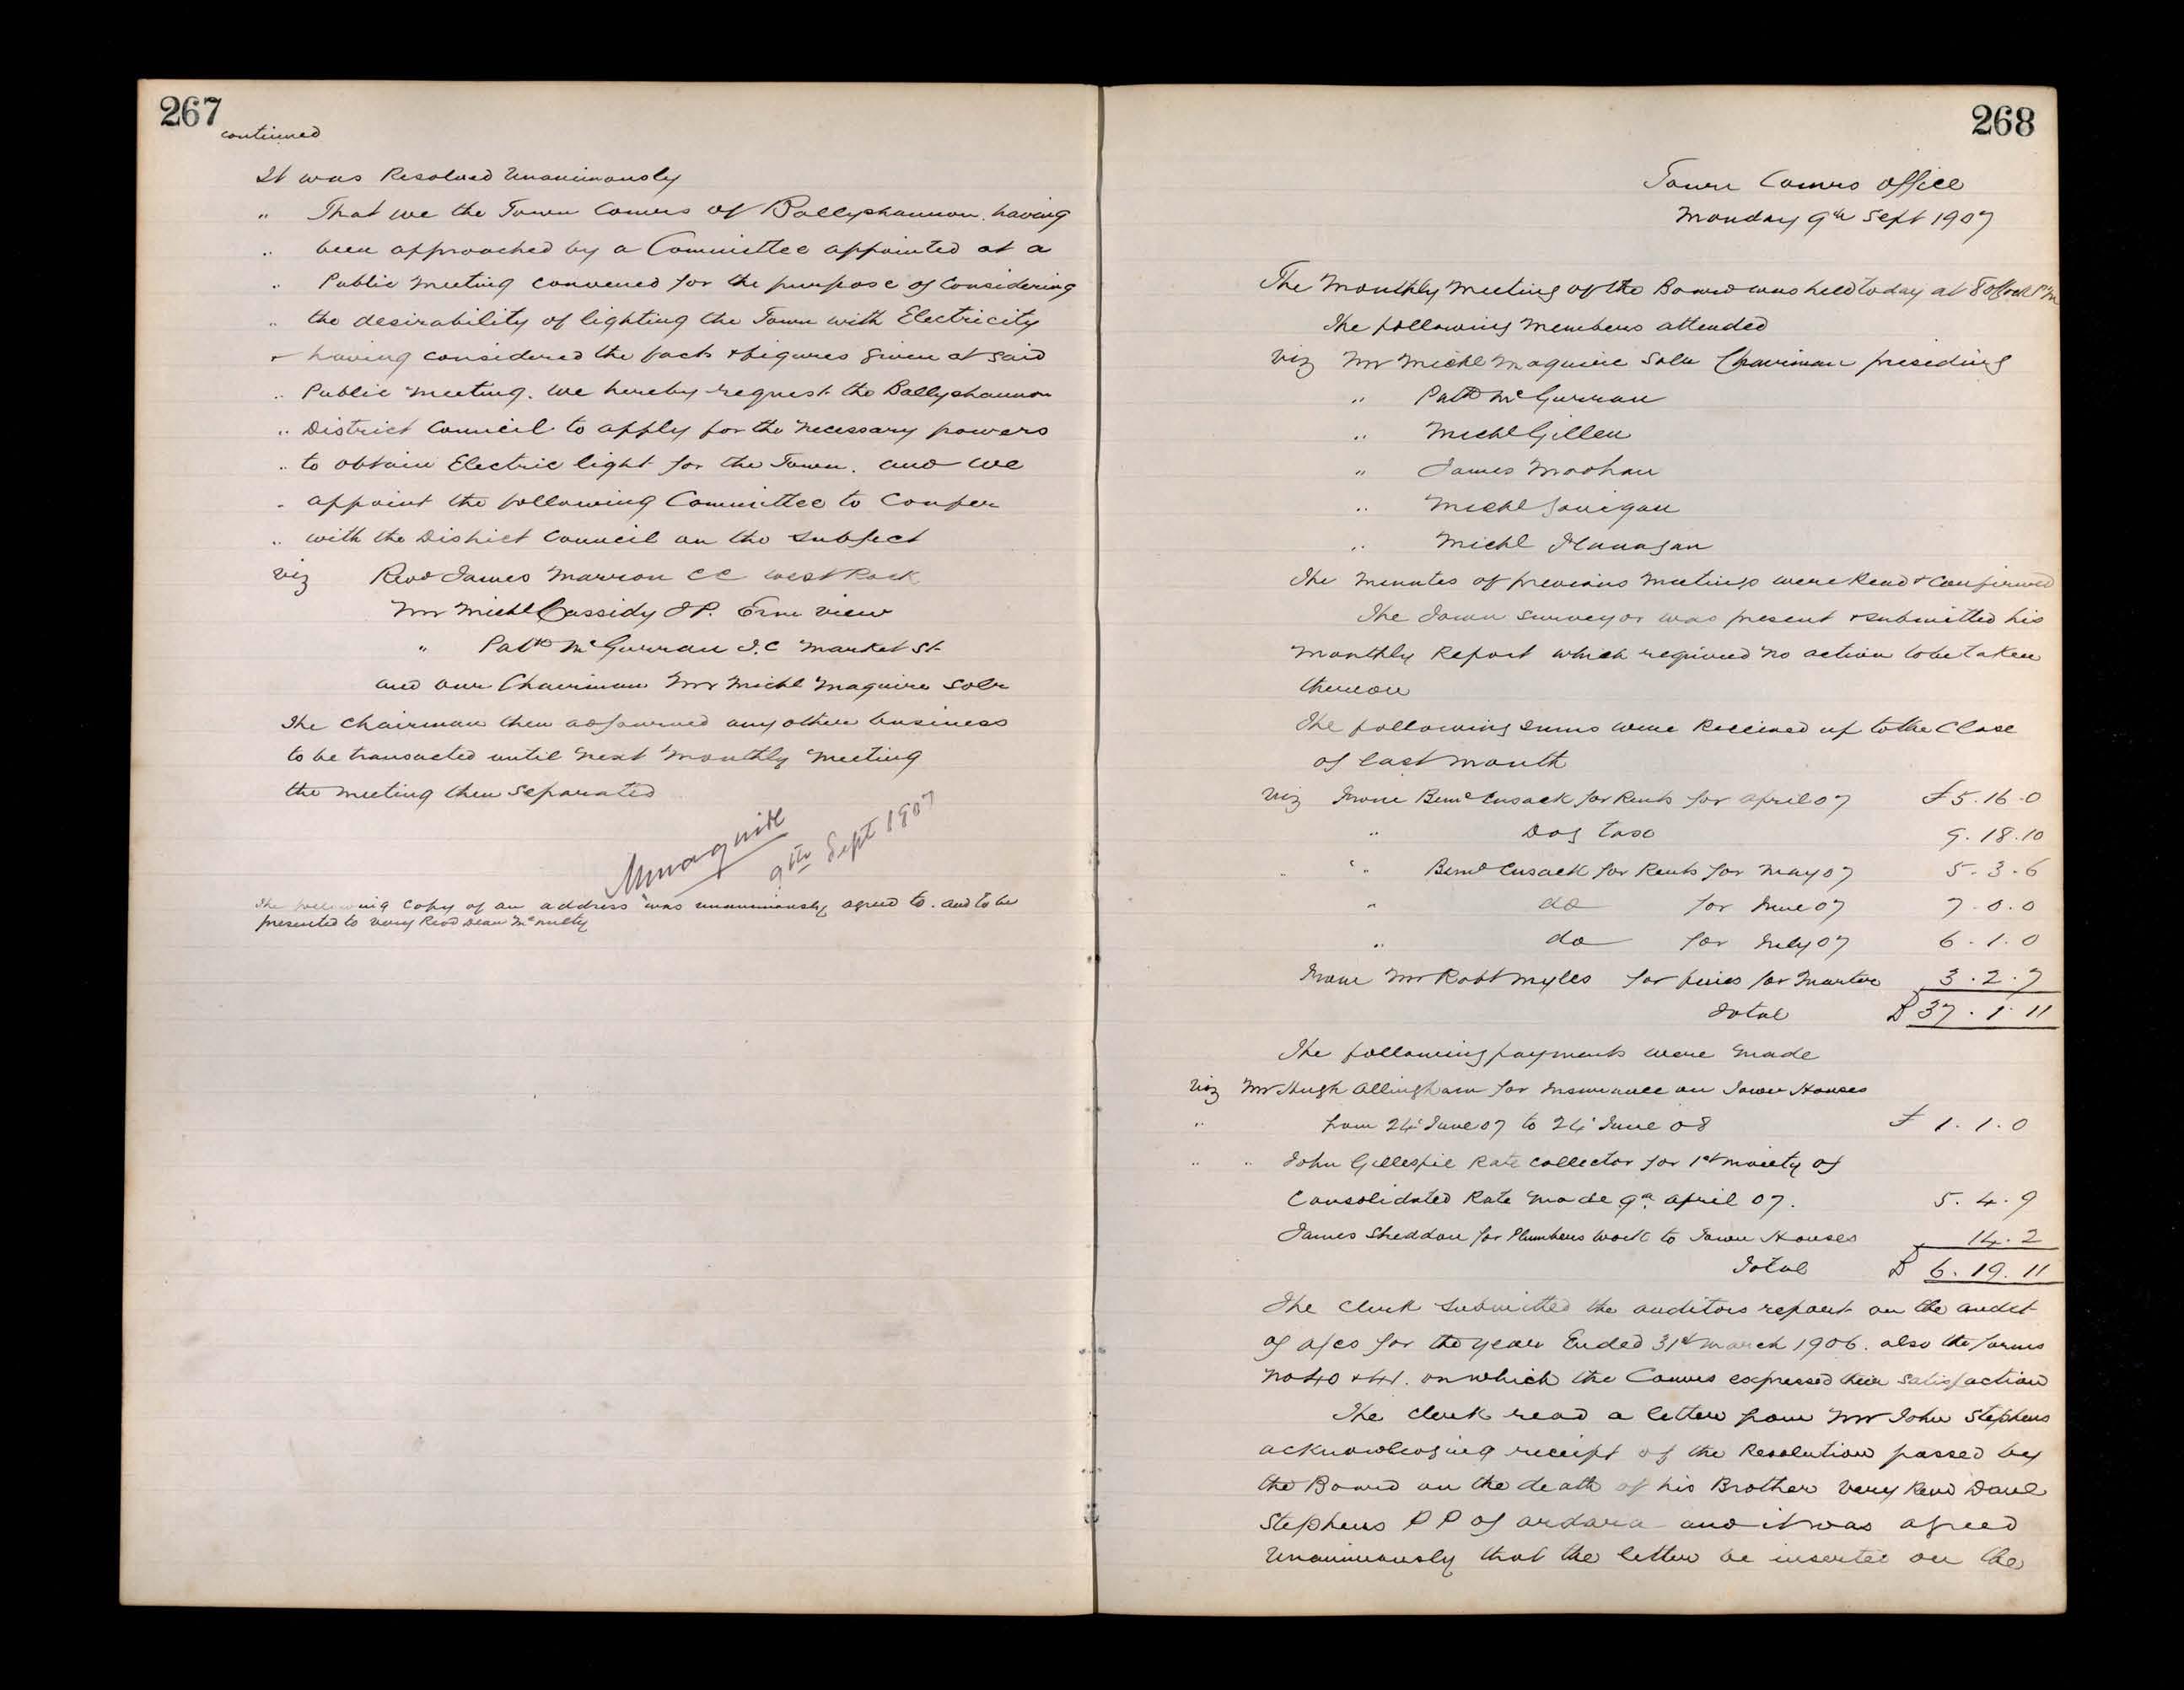 267
continued
It was Resolved Unanimously
" That we the Town Comrs of Ballyshannon. having
" been approached by a Committee appointed at a
" Public Meeting convened for the purpose of Considering
" the desirability of lighting the Town with Electricity
" having considered the facts & figures given at said
" Public Meeting. We hereby request the Ballyshannon
" District Council to apply for the necessary powers
" to obtain Electric light for the Town. and we
" appoint the following Committee to Confer
" with the District Council on the Subject
viz Revd James Marron CC West Rock
Mr Michl Cassidy JP. Erne view
" Patk McGurran T.C Market St
and our Chairman Mr Michl Maguire Solr
The Chairman then adjourned any other business
to be transacted until next Monthly Meeting
the Meeting then Separated
MMaguire
9th Sept 1907
The following Copy of an address was unanimously agreed to. and to be
presented to Very Revd Dean McNulty
268
Town Comrs Office
Monday 9th Sept 1907
The Monthly Meeting of the Board was held today at 8 oClock PM
The following Members attended
Viz Mr Michl Maguire Solr Chairman presiding
" Patk McGurran
" Michl Gillen
" James Moohan
" Michl
" Michl Flanagan
The Minutes of previous Meetings were Read & Confirmed
The Town Surveyor was present & submitted his
Monthly Report which required no action to be taken
thereon
The following sums were Received up to the Close
of last Month
Viz From Bernd Cusack for Rents for April 07 £5.16.0
" Dog tax 9.18.10
" " Bernd Cusack for Rents for May 07 5.3.6
" do for June 07 7.0.0
" do for July 07 6.1.0
From Mr Robt Myles for fines for 3.2.7
Total £37.1.11
The following payments were made
Viz Mr Hugh Allingham for Insurance on Town Houses
" from 24 June 07 to 24 June 08 £1.1.0
" " John Gillespie Rate Collector for 1st moiety of
Consolidated Rate made 9th April 07. 5.4.9
James Sheddon for Plumbers Work to Town Houses 14.2
Total £6.19.11
The Clerk Submitted the auditors report on the audit
of a/cs for the year Ended 31st March 1906. also the forms
No 40 & 41. on which the Comrs expressed their satisfaction
The Clerk read a letter from Mr John Stephens
acknowledging receipt of the Resolution passed by
the Board on the death of his Brother Very Revd Danl
Stephens P P of Ardara and it was agreed
Unanimously that the letter be inserted on the